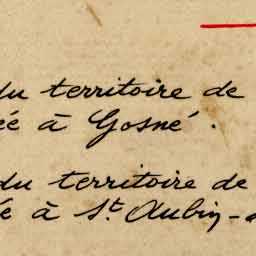 du territoire de
ée à Gosné.
du territoire de
ée à St Aubin-